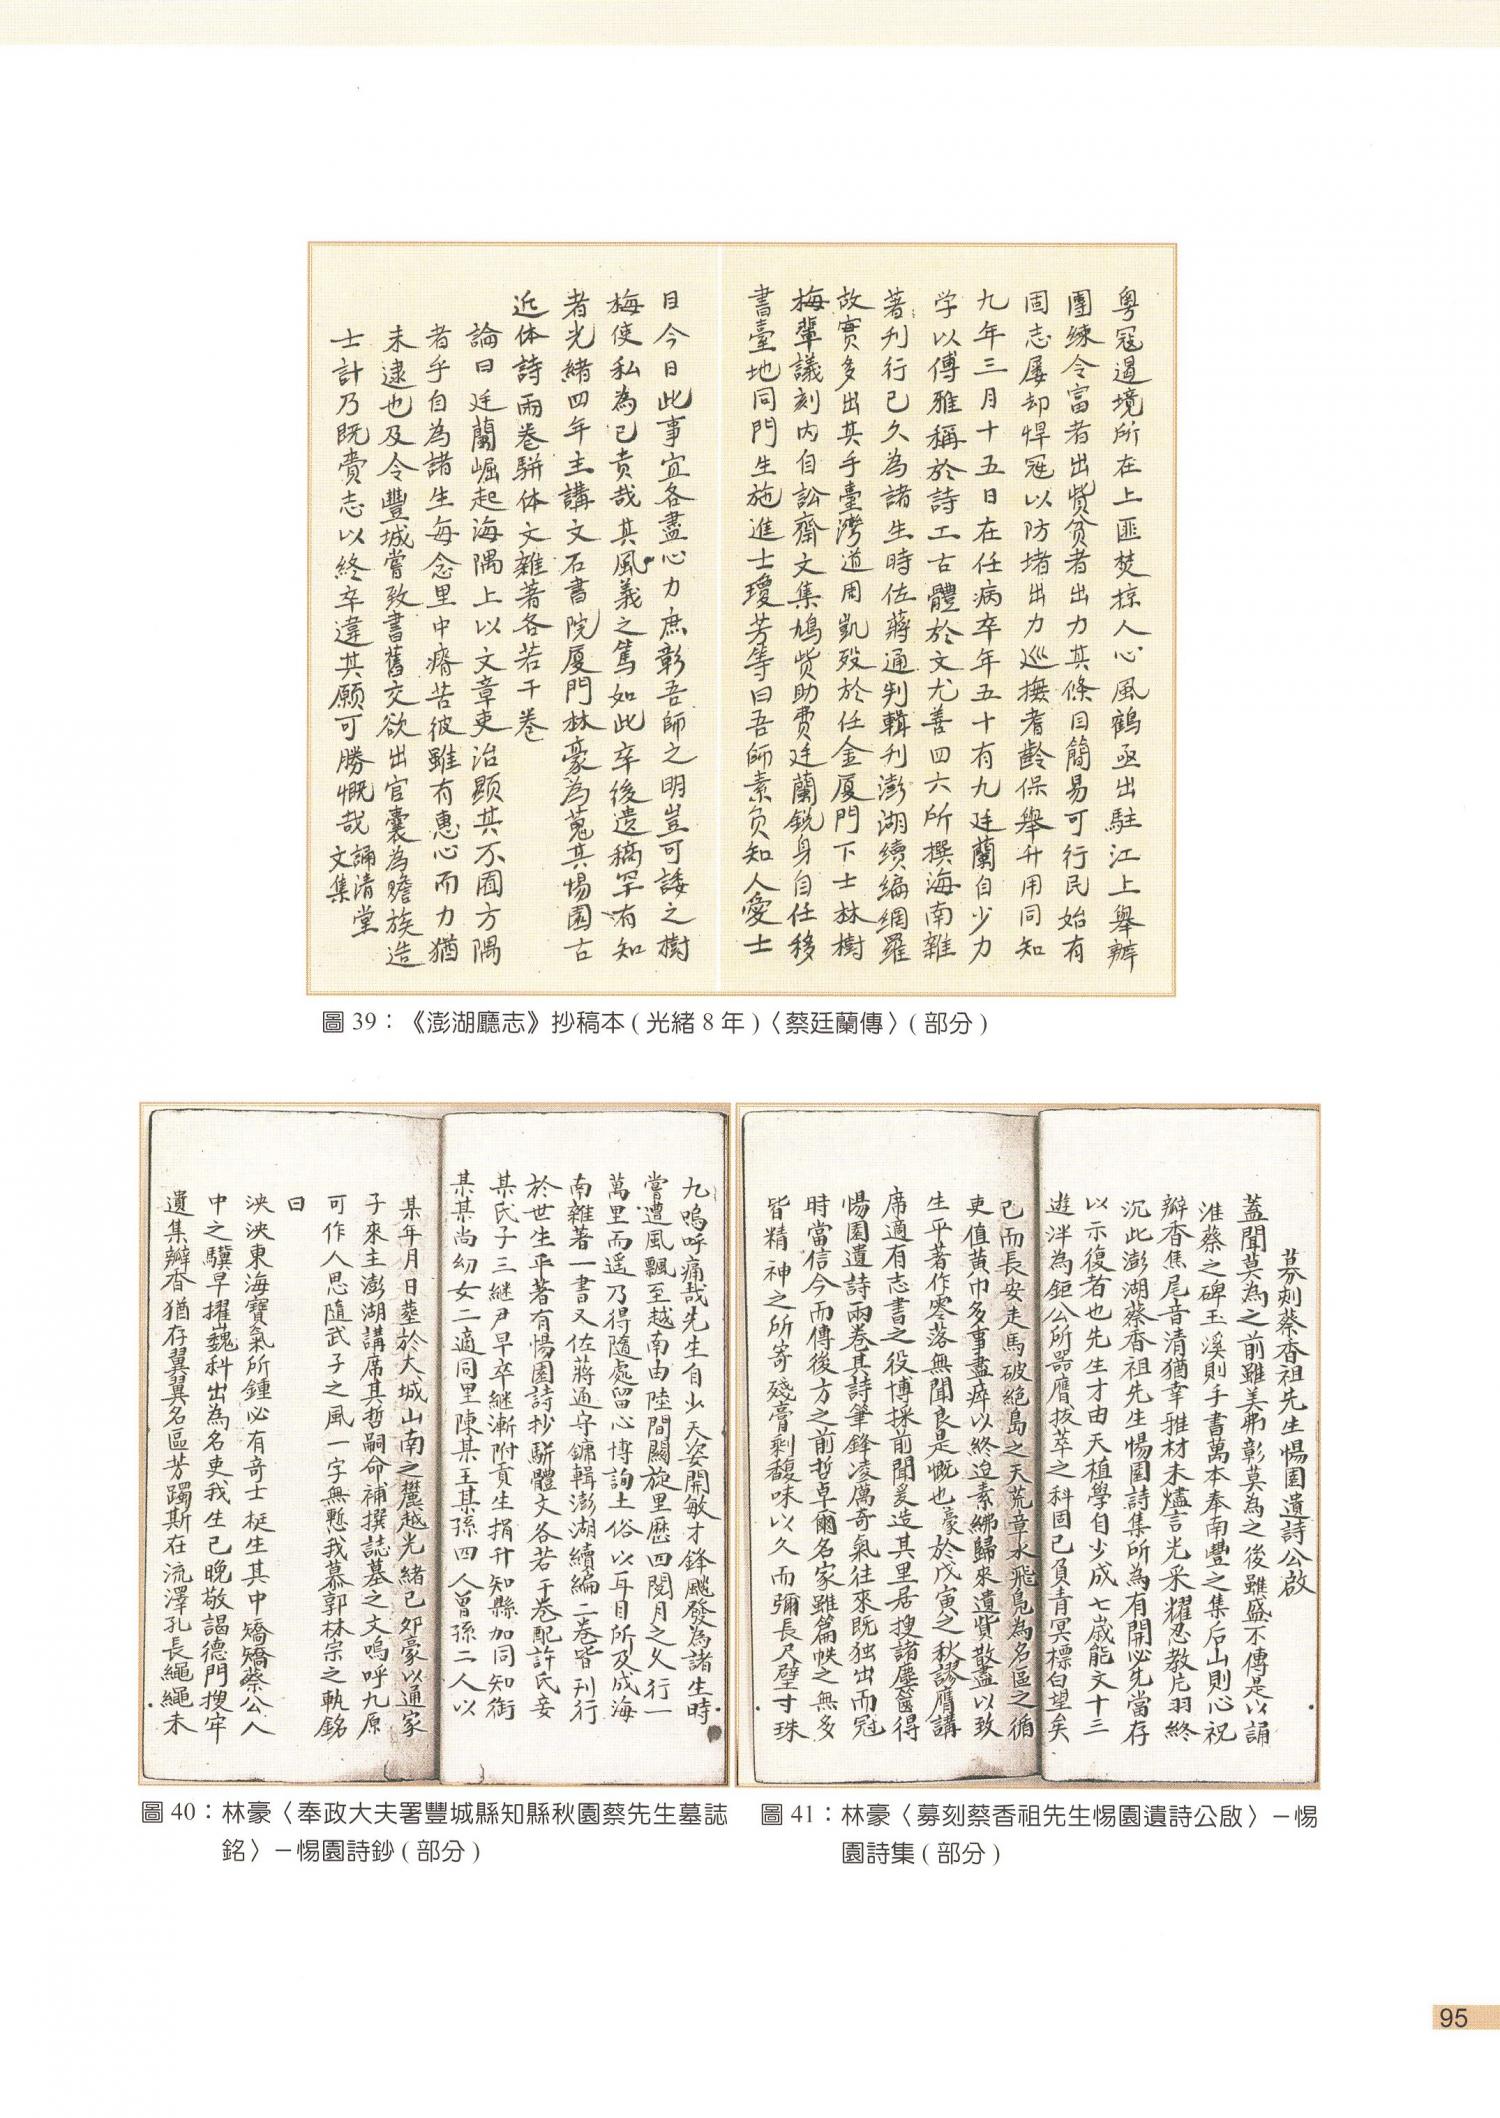 粵寇過境所在上匪焚掠人心風鶴亟出駐江上舉辦
團練令富者出貲貧者出力其條目簡易可行民始有
固志屢却悍寇以防堵出力巡撫耆齡保舉升用同知
九年三月十五日在任病卒年五十有九廷蘭自少力
学以傅雅稱於詩工古體於文尤善四六所撰海南雜
著刊行已久為諸生時佐蔣通判輯刊澎湖續編網羅
故實多出其手臺灣道周凱歿於任金厦門下士林樹
梅輩議刻內自訟齋文集鳩貲助費廷蘭銳身自任移
書臺地同門生施進士瓊芳等曰吾師素負知人愛士
目今日此事宜各盡心力庶彰吾師之明豈可諉之樹
梅使私為己責哉其風義之篤如此卒後遺稿罕有知
者光緒四年主講文石書院厦門林豪為蒐其惕園古
近体詩兩卷駢体文雜著各若干卷
論曰廷蘭崛起海隅上以文章吏治顯其不囿方隅
者乎自為諸生每念里中瘠苦彼雖有惠心而力猶
未逮也及令豐城嘗致書舊交欲出官囊為贍族造
士計乃既賫志以終卒違其願可勝慨哉 誦清堂
文集
圖 39：《澎湖廳志》抄稿本 ( 光緒 8 年 )〈蔡廷蘭傳〉( 部分 )
九嗚呼痛哉先生自少天姿開敏才鋒飈發為諸生時
嘗遭風飄至越南由陸間關旋里歷四閱月之久行一
萬里而遥乃得隨處留心博詢土俗以耳目所及成海
南雜著一書又佐蔣通守鏞輯澎湖續編二卷皆刊行
於世生平著有惕園詩抄駢體文各若干卷配許氏妾
某氏子三継尹早卒継漸附貢生捐升知縣加同知銜
某某尚幼女二適同里陳某王某孫四人曾孫二人以
某年月日塟於大城山南之麓越光緒己夘豪以通家
子來主澎湖講席其哲嗣命補撰誌墓之文嗚呼九原
可作人思隨武子之風一字無慙我慕郭林宗之軌銘
曰
泱泱東海寶氣所鍾必有奇士梃生其中矯矯蔡公人
中之驥早擢巍科出為名吏我生已晚敬謁德門搜牢
遺集瓣香猶存翼翼名區芳躅斯在流澤孔長繩繩未
圖 40：林豪〈奉政大夫署豐城縣知縣秋園蔡先生墓誌
銘〉－惕園詩鈔 ( 部分 )
募刻蔡香祖先生惕園遺詩公啟
蓋聞莫為之前雖美弗彰莫為之後雖盛不傳是以誦
淮蔡之碑玉溪則手書萬本奉南豐之集后山則心祝
瓣香焦尾音清猶幸雅材未爐言光采耀忍教片羽終
沉此澎湖蔡香祖先生惕園詩集所為有開必先當存
以示復者也先生才由天植學自少成七歲能文十三
遊泮為鉅公所器膺拔萃之科固已負青冥標白望矣
已而長安走馬破絕島之天荒章水飛凫為名區之循
吏值黃巾多事盡瘁以終迨素紼歸來遺貲散盡以致
生平著作零落無聞良是慨也豪於戊寅之秋謬膺講
席適有志書之役博採前聞爰造其里居搜諸塵篋得
惕園遺詩兩卷其詩筆鋒凌厲奇氣往來既独出而冠
時當信今而傳後方之前哲卓爾名家雖篇帙之無多
皆精神之所寄殘膏剩馥味以久而彌長尺璧寸珠
圖 41：林豪〈募刻蔡香祖先生惕園遺詩公啟〉－惕
園詩集 ( 部分 )
95